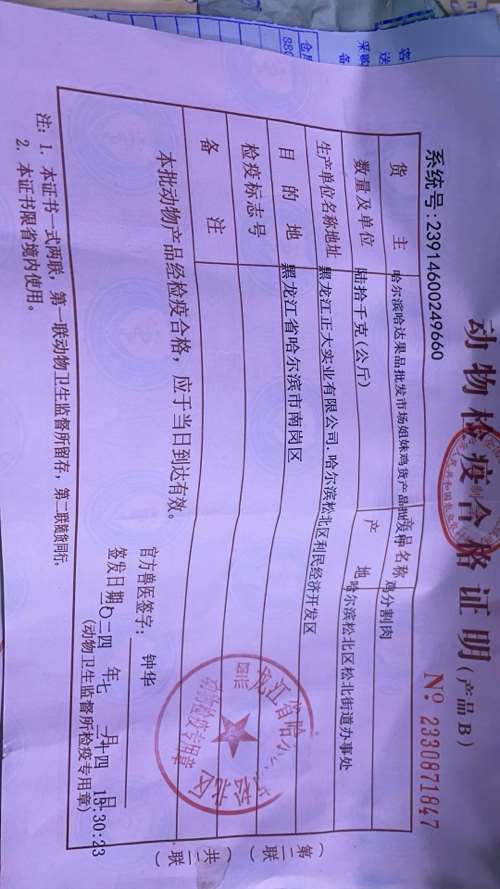 动物检疫合格证明(产品B)
系统号:23914600249660
№ 2330871847
货主 哈尔滨哈达果品批发市场姐妹鸡货产品批发 产品名称 鸡分割肉
数量及单位 陆拾千克(公斤) 产地 哈尔滨松北区松北街道办事处
生产单位名称地址 黑龙江正大实业有限公司.哈尔滨松北区利民经济开发区
目的地 黑龙江省哈尔滨市南岗区
检疫标志号
备注
本批动物产品经检疫合格,应于当日到达有效。
官方兽医签字: 钟华
签发日期 二四年七月 十四日 13:30:23
(动物卫生监督所检疫专用章)
注:1. 本证书一式两联,第一联动物卫生监督所留存,第二联随货同行。
2. 本证书限省境内使用。
(第二联)
(共二联)
龙江省哈
松北区
动物检疫专用章